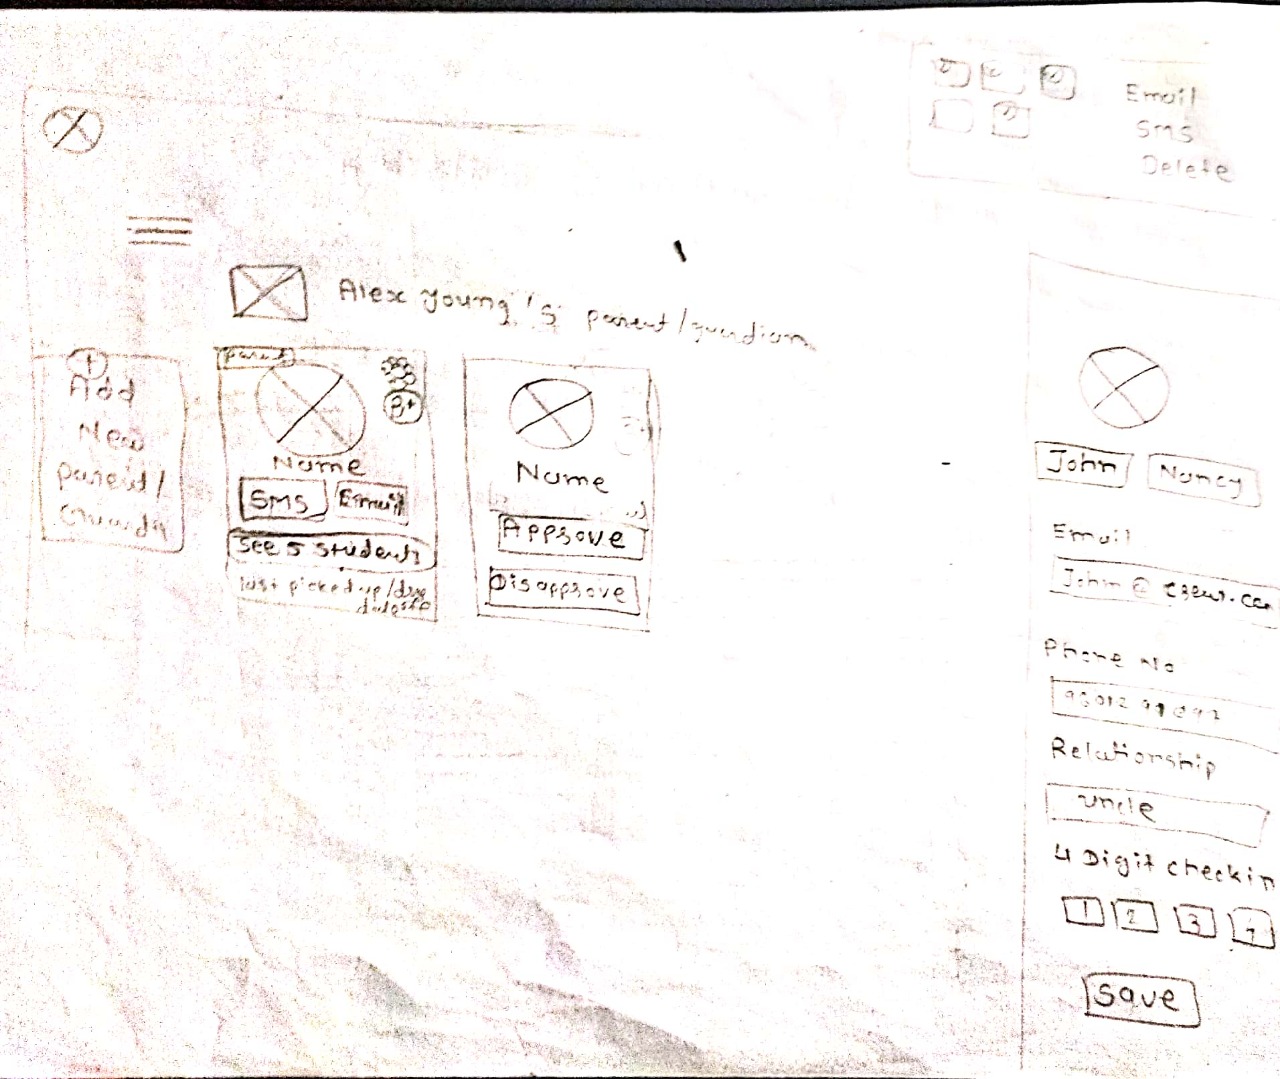 Email
Sms
Delete
Alex young's parent/guardian
Add
New
parent/
parent
Name
SMS Email
See 5 students
last picked up/drop
Name
Approve
Disapprove
John Nancy
Email
Phone No
Relationship
uncle
4 Digit checkin
1 2 3 4
Save